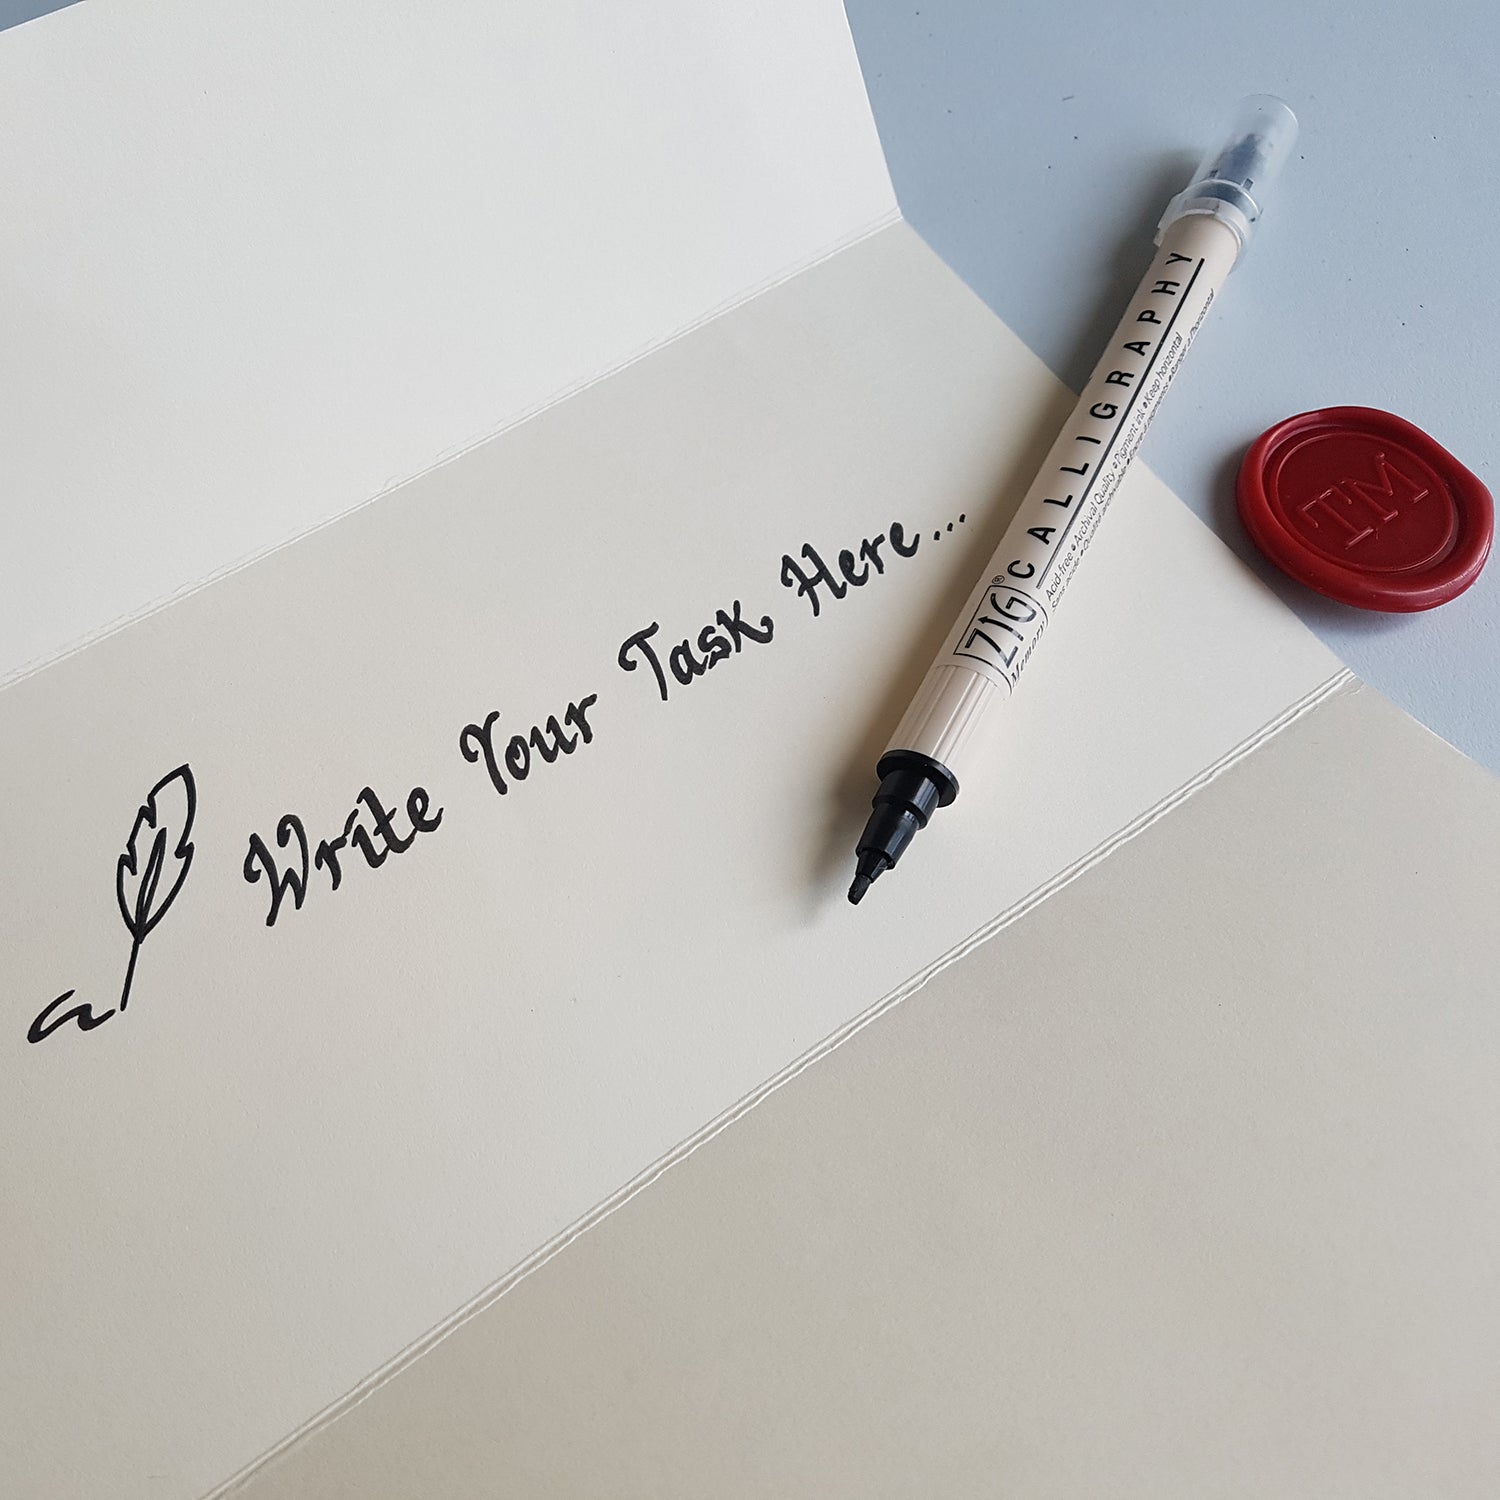 Write Your Task Here...
ZIG®
Memory
CALLIGRAPHY
Acid-free • Archival Quality • Pigment ink • Keep horizontal
TM